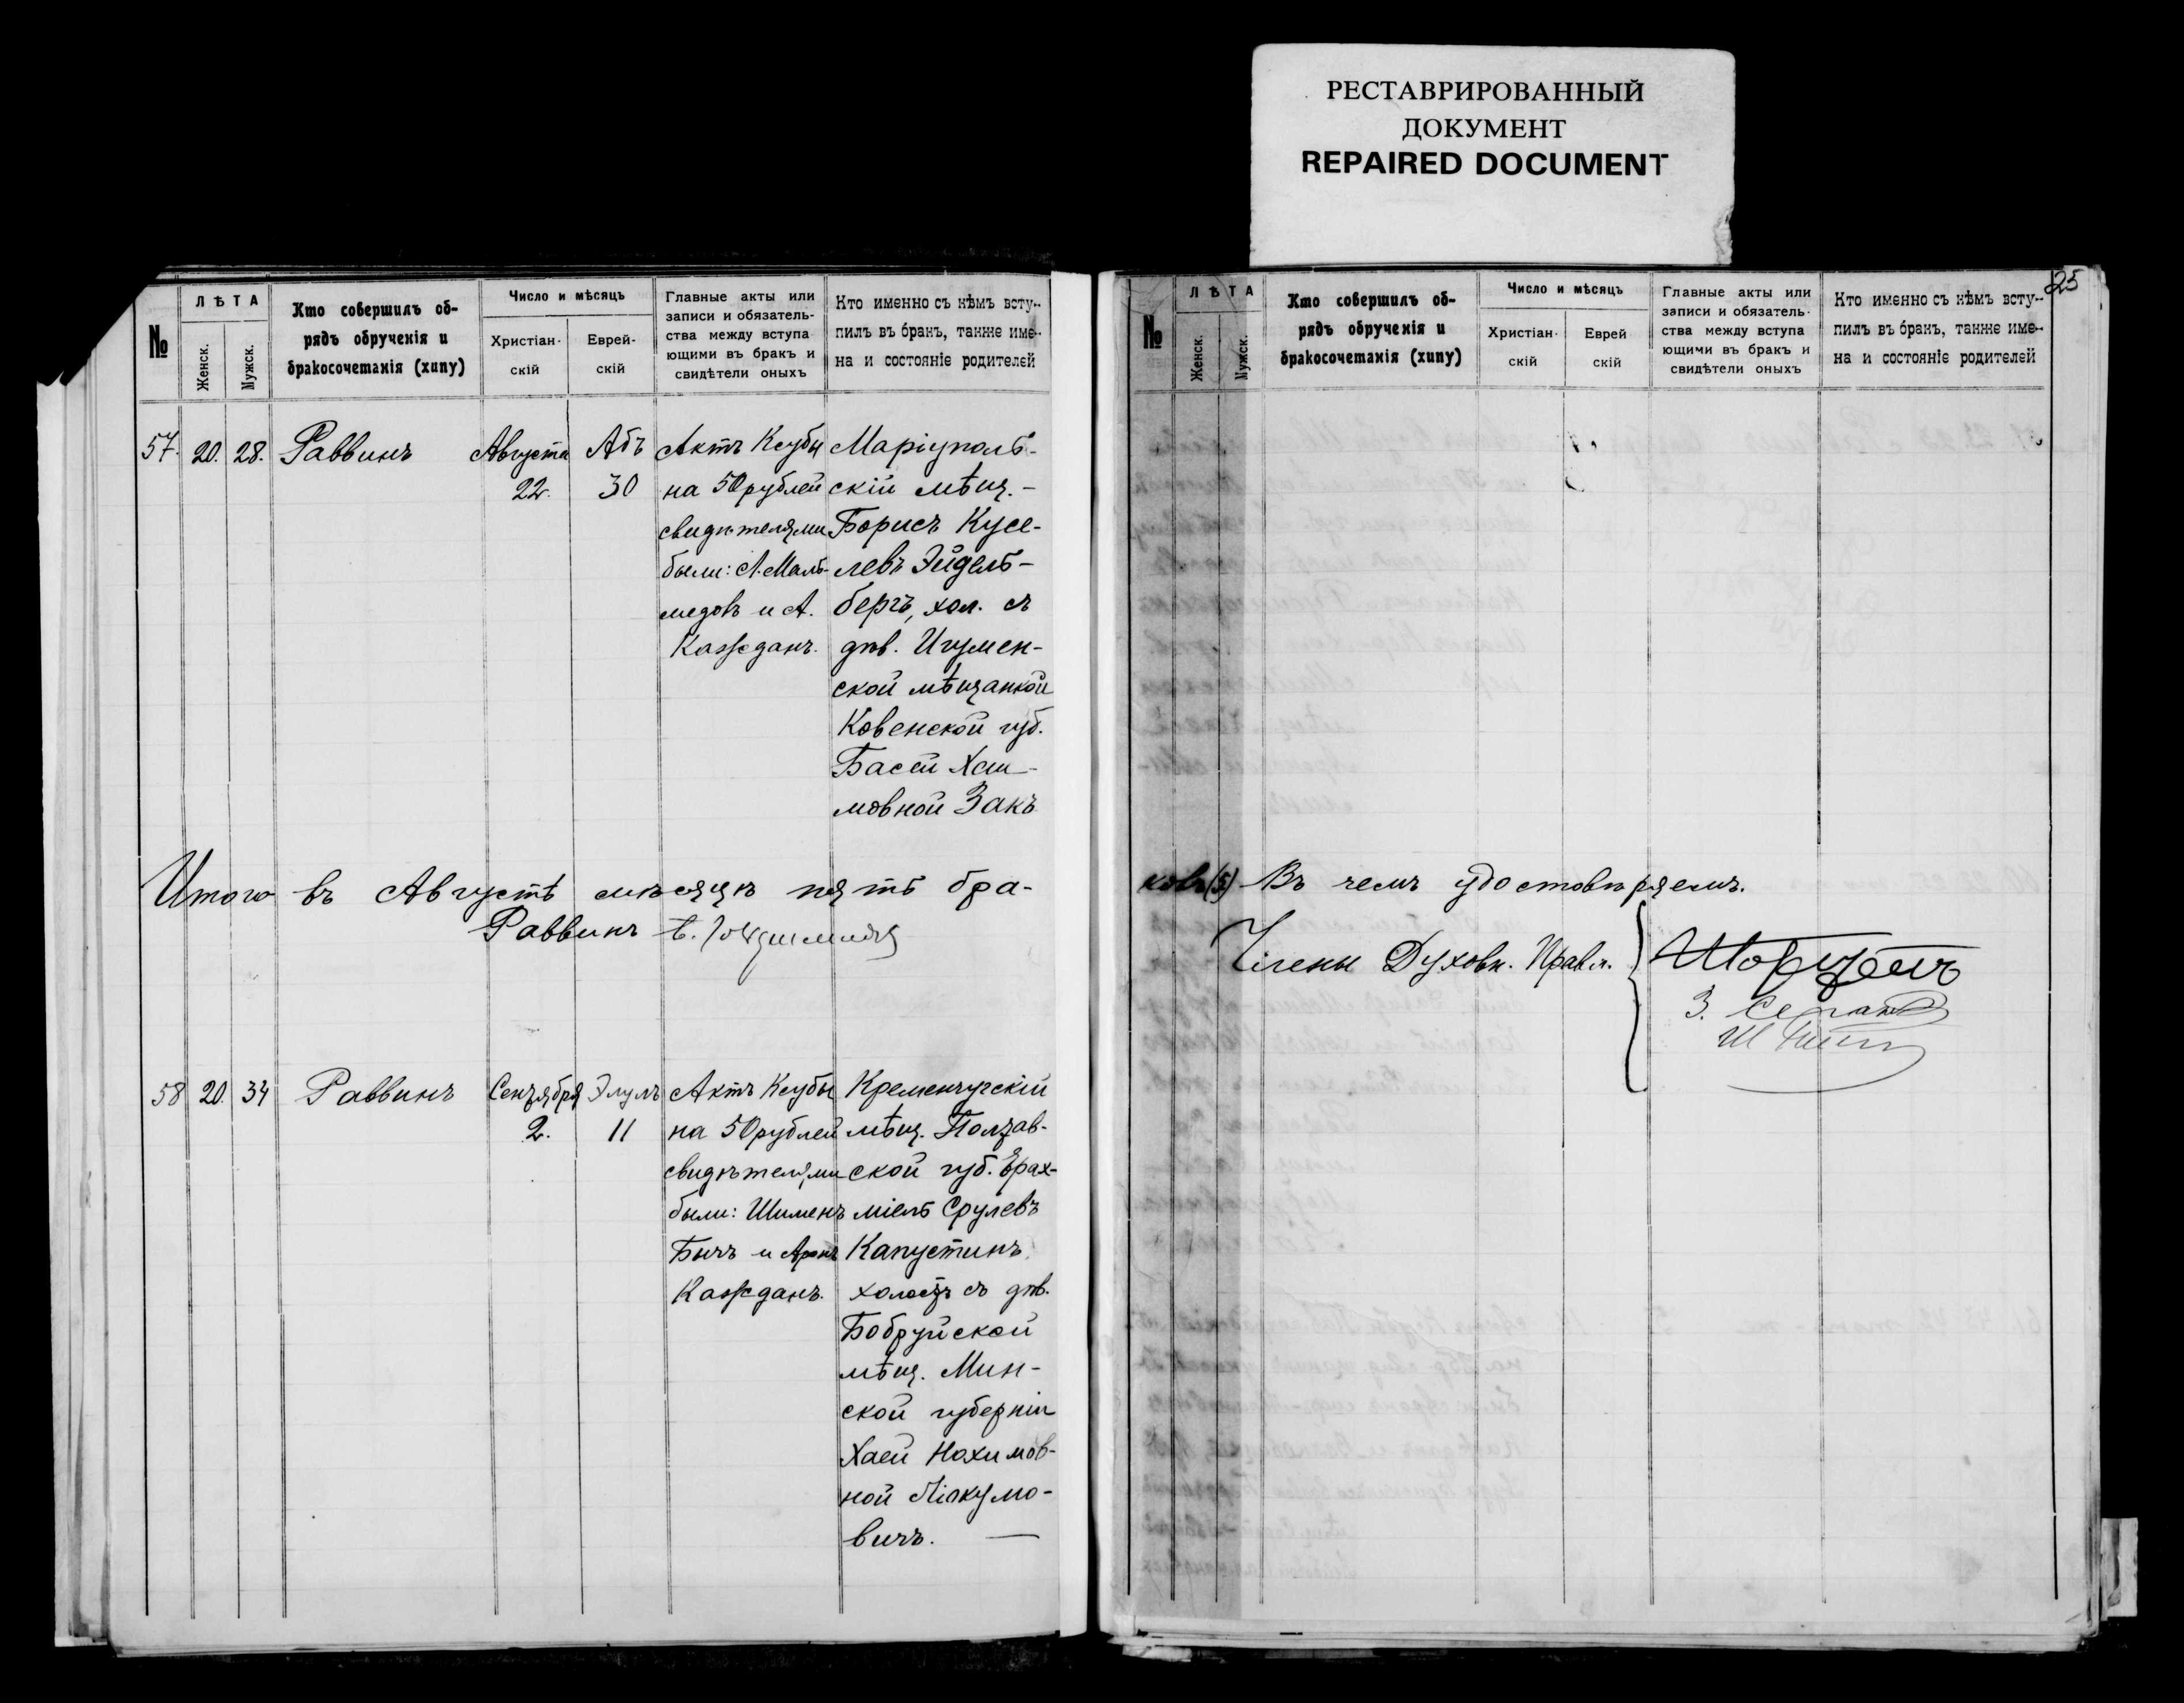 РЕСТАВРИРОВАННЫЙ
ДОКУМЕНТ
REPAIRED DOCUMENT
№
ЛѢТА
Женск.
Мужск.
Кто совершилъ об-
рядъ обрученія и
бракосочетанія (хипу)
Число и мѣсяцъ
Христіан-
скій
Еврей-
скій
Главные акты или
записи и обязатель-
ства между вступа
ющими въ бракъ и
свидѣтели оныхъ
Кто именно съ кѣмъ всту-
пилъ въ бракъ, также име-
на и состояніе родителей
57.
20.
28.
Раввинъ
Августа
22.
Абъ
30
Актъ Ксубы
на 50 рублей
свидѣтелями
были: А. Маль-
медовъ и А.
Кажданъ.
Маріуполь-
скій мѣщ. -
Борисъ Кусе-
левъ Эйдель-
бергъ, хол. съ
дѣв. Игумен-
ской мѣщанкой
Ковенской губ.
Басей Хаи-
мовной Закъ
Итого въ Августѣ мѣсяцѣ пять бра-
Раввинъ
58
20.
34
Раввинъ
Сентября
2.
Элулъ
11
Актъ Ксубы
на 50 рублей
свидѣтелями
были: Шименъ
Бычъ и Аронъ
Кажданъ.
Кременчугскій
мѣщ. Полтав-
ской губ. Ерах-
міель Срулевъ
Капустинъ
холостъ съ дѣв.
Бобруйской
мѣщ. Мин-
ской губерніи
Хаей Нохимов-
ной
вичъ. —
25
№
ЛѢТА
Женск.
Мужск.
Кто совершилъ об-
рядъ обрученія и
бракосочетанія (хипу)
Число и мѣсяцъ
Христіан-
скій
Еврей
скій
Главные акты или
записи и обязатель-
ства между вступа
ющими въ бракъ и
свидѣтели оныхъ
Кто именно съ кѣмъ всту-
пилъ въ бракъ, также име-
на и состояніе родителей
ковъ (5) Въ чемъ удостовѣряемъ.
Члены Духовн. Правл.
З.
Ш